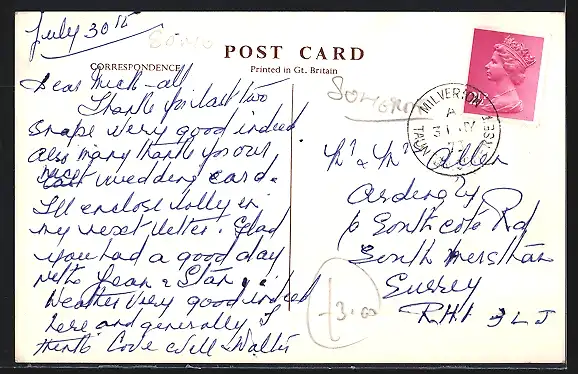 July 30th
POST CARD
CORRESPONDENCE
Printed in Gt. Britain
SOMERSET
MILVERTON
TAUNTON SOMERSET
Dear Mick & all
Thanks for last two
snaps very good indeed
also many thanks for our
nice wedding card.
I'll enclose lolly in
my next letter. Glad
you had a good day
with Jean & Stan.
Weather very good indeed
here and generally I
think Love Nell & Wally
Mr & Mrs Allen
Ardingly
6 Southcote Rd
South Merstham
Surrey
RH1 3LJ
3.00